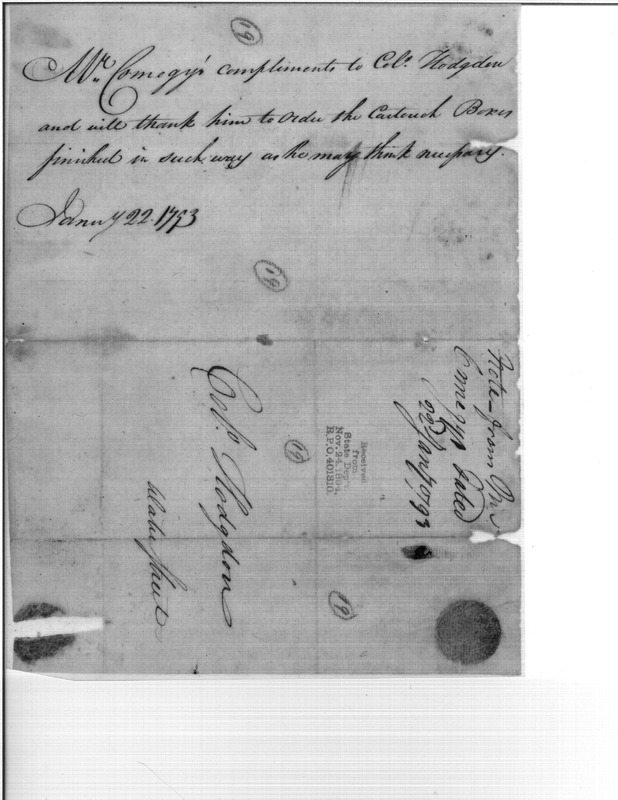 19
Mr. Comegy's compliments to Colo. Hodgdon
and will thank him to order the Cartouch Boxes
finished in such way as he may think necessary.
Januy 22. 1793
19
Note from Mr
Comegys dated
22 Jany 1793
Received
from
State Dept.
Nov. 24, 1894
R.P.O. 401810.
19
Colo. Hodgdon
Water Street
19